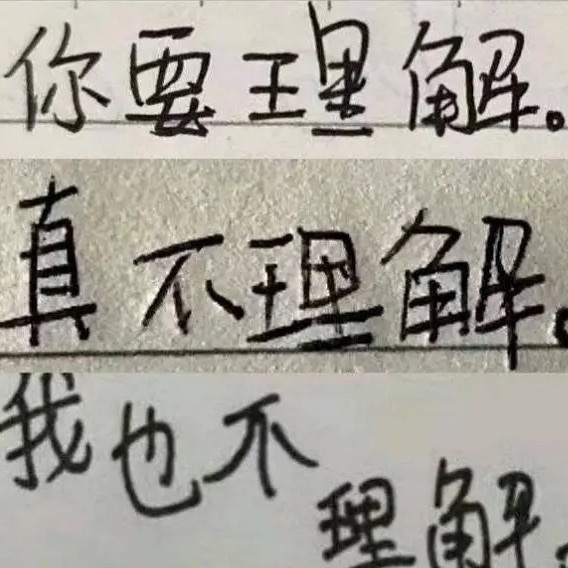 你要理解。
真不理解。
我也不
理解。